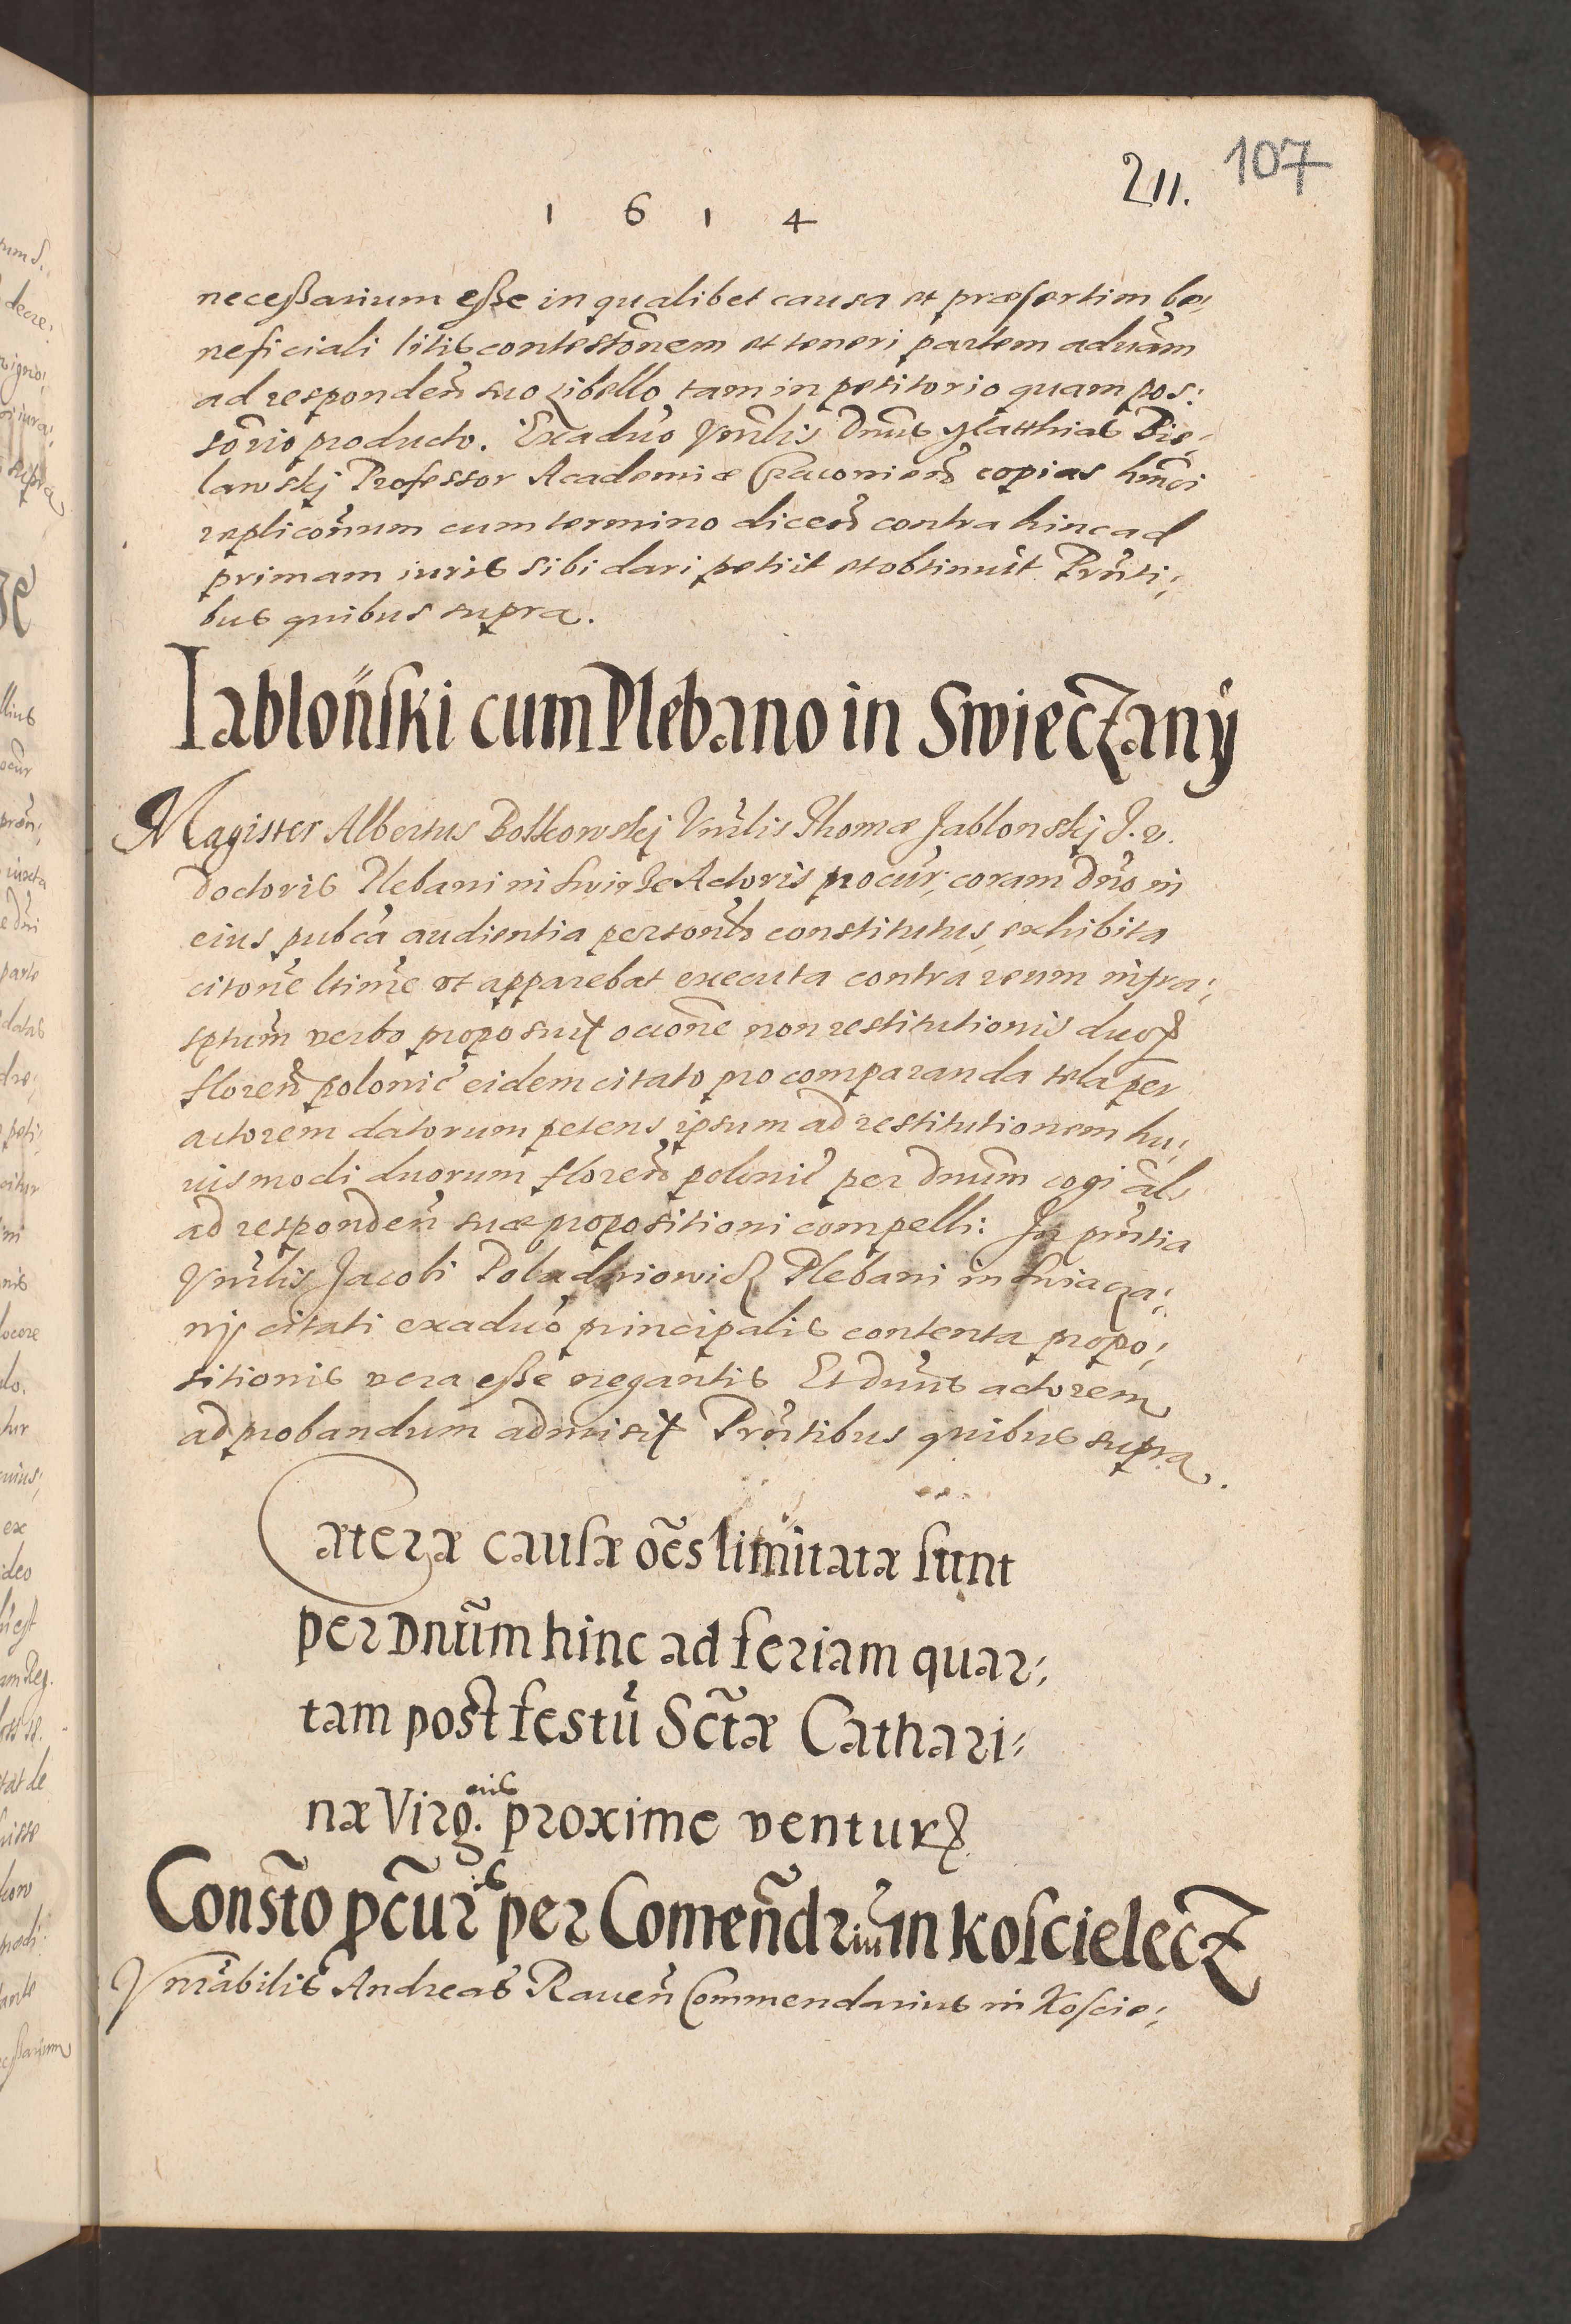 107
211.
1 6 1 4
neceßarium eße in qualibet causa et præsertim be,
neficiali litis contestōnem et teneri partem aduām
ad responden̄ suo libello tam in petitorio quam pos:
sōrio producto. Exaduō Vnrlis Dnūs Matthias Bie,
lawskj Professor Academiæ Cracouien̄ copias hmōi
replicōnum cum termino dicen̄ contra hinc ad
primam iuris sibi dari petiit et obtinuit Prn̄ti,
bus quibus supra.
Iablonſki cum Plebano in Swieczanÿ
Magister Albertus Botkowskj Vnr̄lis Thomæ Jablonskj J. v.
Doctoris Plebani in Actoris procūr, coram Dn̄o in
eius pubca audientia personlr constitutus, exhibita
citone ltime vt apparebat executa contra reum infra,
sptum verbo proposuit ōcione non restitutionis duoꝝ
floren̄ polonic̄ eidem citato pro comparanda tela per
actorem datorum petens ipsum ad restitutionem hu,
iusmodi duorum floren̄ polonic̄ per Dnūm cogi āls
ad responden̄ suæ propositioni compelli: In prn̄tia
Vnr̄lis Jacobi Poludniowicz Plebani in Swiacza,
nij citati exaduō principalis contenta propo,
sitionis vera eße negantis Et Dnūs actorem
ad probandum admisit Prn̄tibus quibus supra.
Cæteræ cauſæ oēs limitatæ ſunt
per Dnūm hinc ad feriam quar,
tam post festū Sctæ Cathari,
næ Virg.inis proxime venturꝝ
Constō pcūris per Comen̄driū in Koſcielecz
Vnrabilis Andreas Rauen̄ Commendarius in Koſcie,